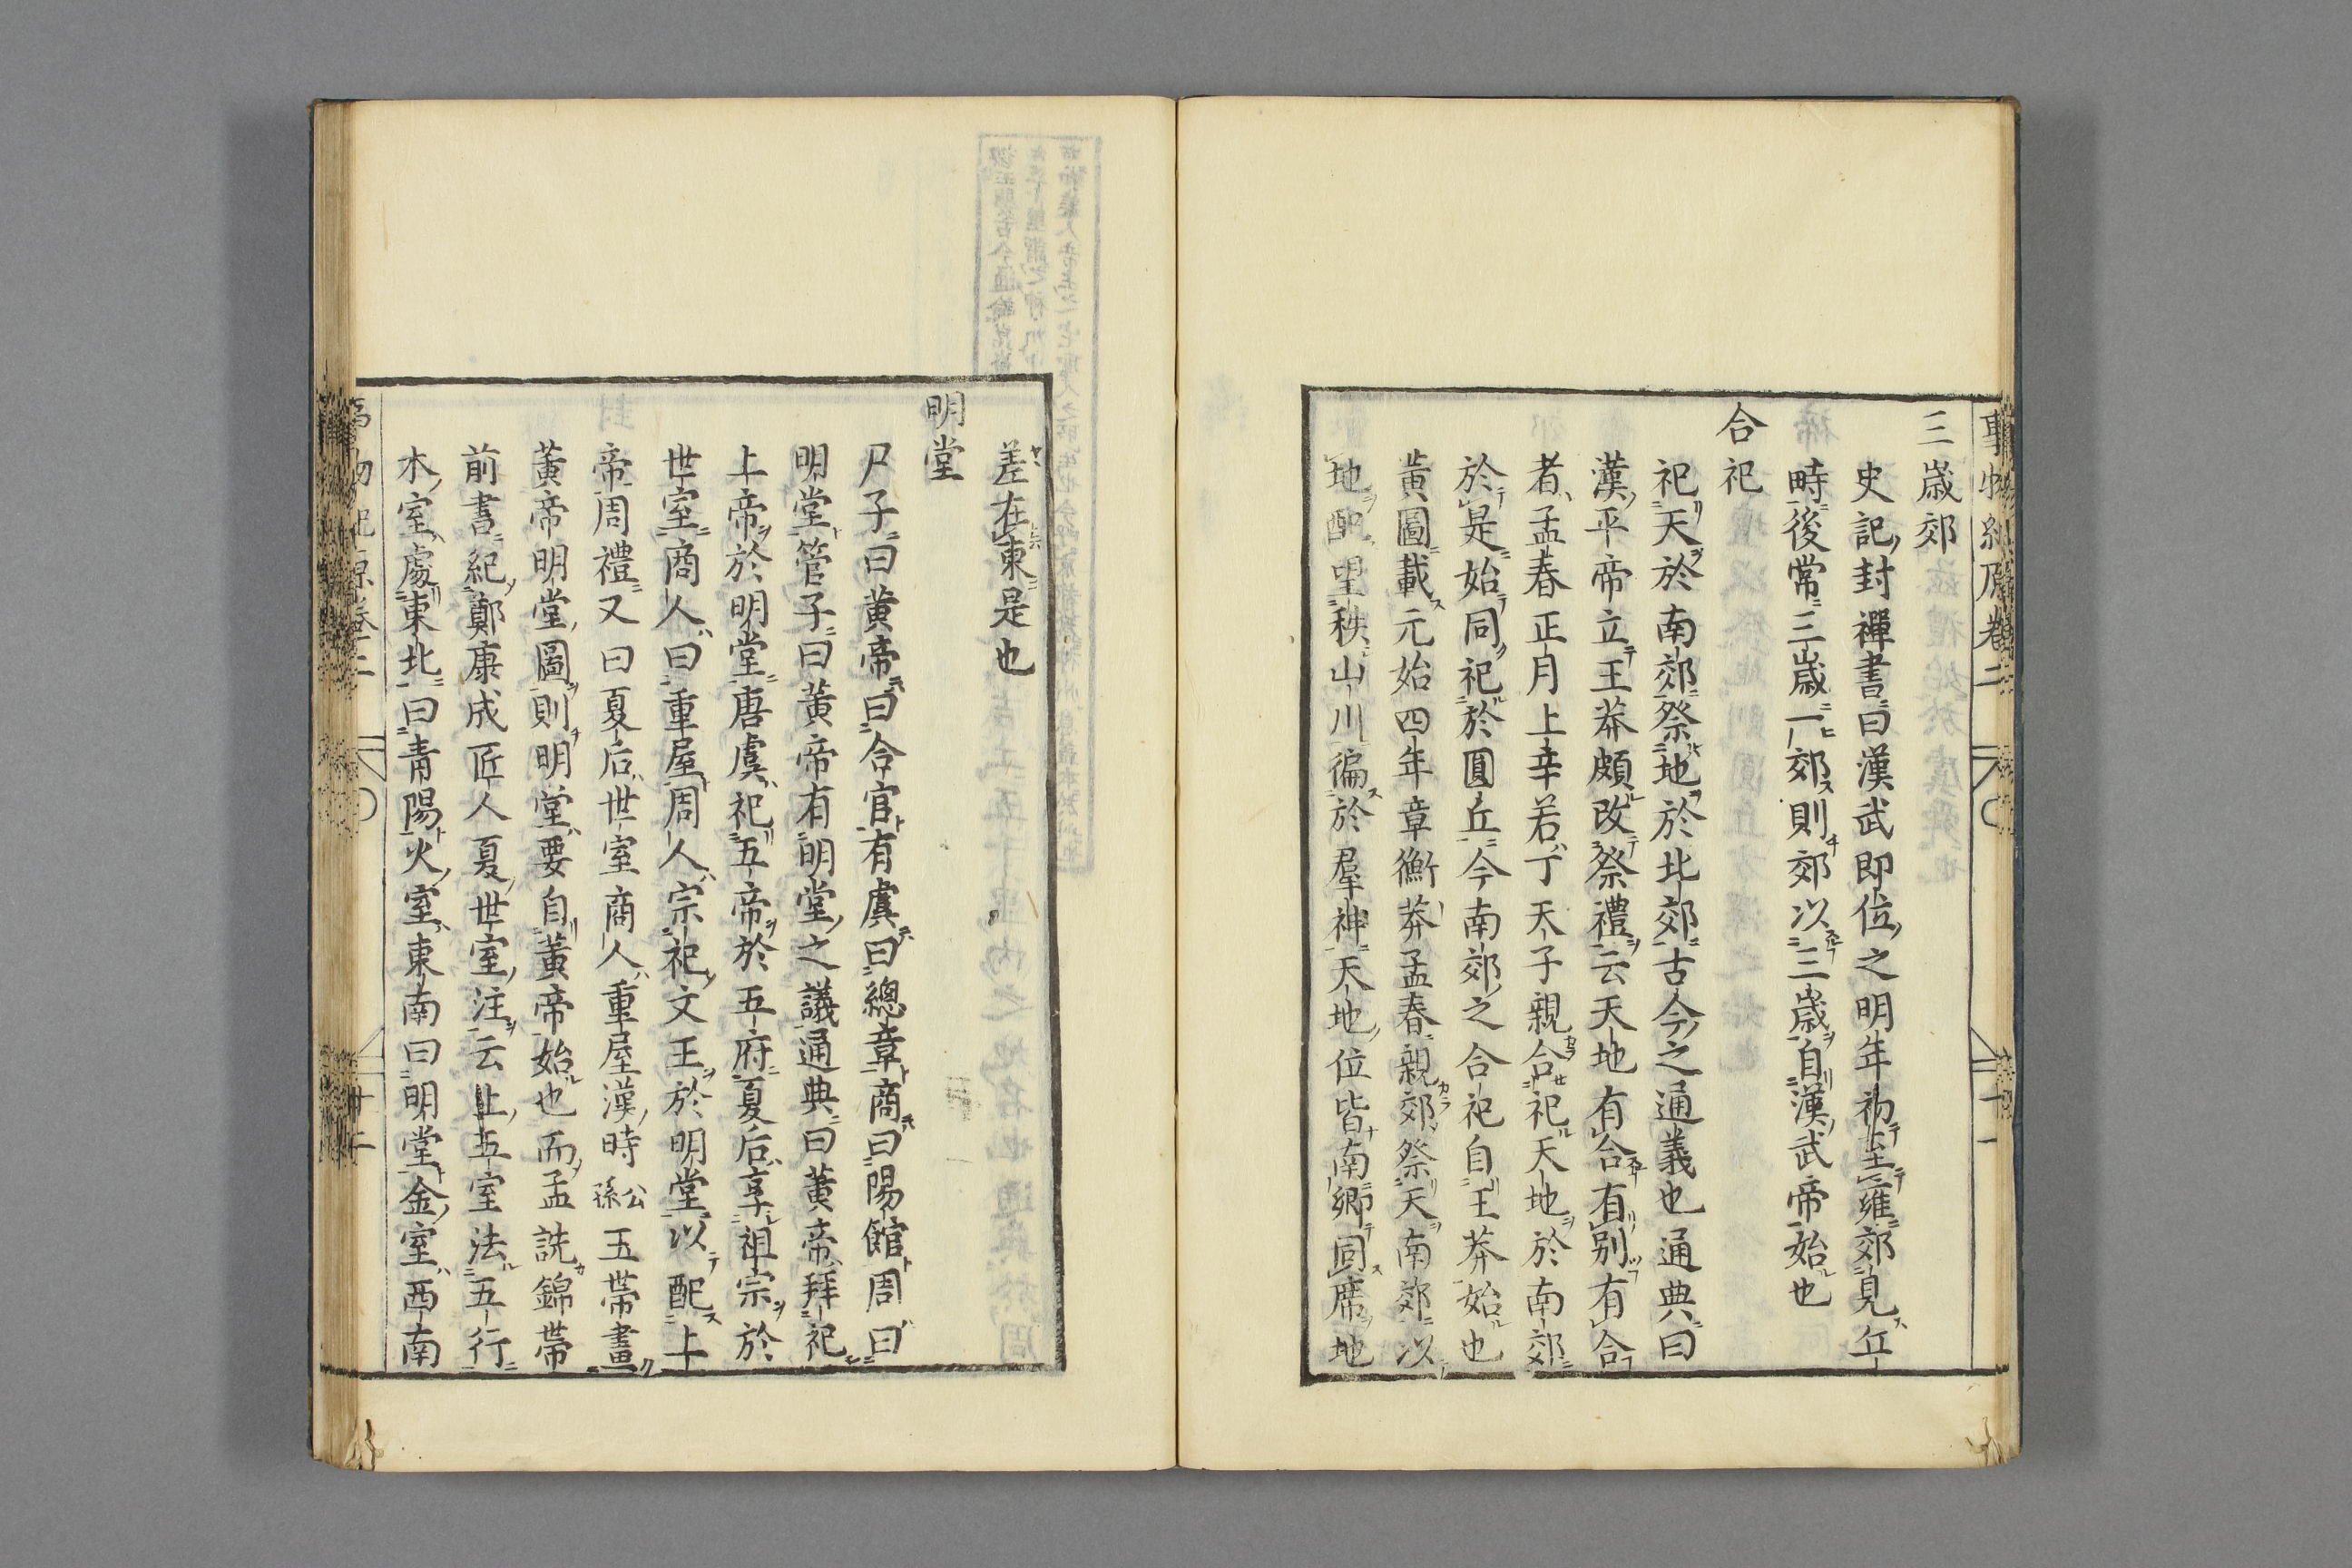 三歳郊
史記封禪書曰漢武即位之明年初至雍郊見五
畤後常三歳一郊則郊以三歳自漢武帝始也
合祀
祀天於南郊祭地於北郊古今之通義也通典曰
漢平帝立王莽頗改祭禮云天地有合有別有合
者孟春正月上辛若丁天子親合祀天地於南郊
於是始同祀於圓丘今南郊之合祀自王莽始也
黄圖載元始四年章衡莽孟春親郊祭天南郊以
地配望秩山川徧於羣神天地位皆南郷同席地
差在東是也
明堂
尸子曰黄帝曰合官有虞曰總章商曰陽館周曰
明堂管子曰黄帝有明堂之議通典曰黄帝拜祀
上帝於明堂唐虞祀五帝於五府夏后享祖宗於
世室商人曰重屋周人宗祀文王於明堂以配上
帝周禮又曰夏后世室商人重屋漢時公孫玉帯畫
黄帝明堂圖則明堂要自黄帝始也而孟詵錦帯
前書紀鄭康成匠人夏世室注云止五室法五行
木室處東北曰青陽火室東南曰明堂金室西南